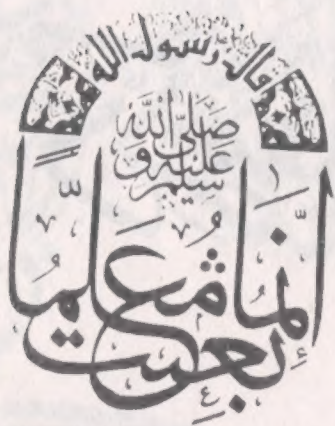 قال رسول الله
صَلَّى اللهُ
عَلَيْهِ وَ
سَلَّم
إِنَّمَا بُعِثْتُ مُعَلِّمًا